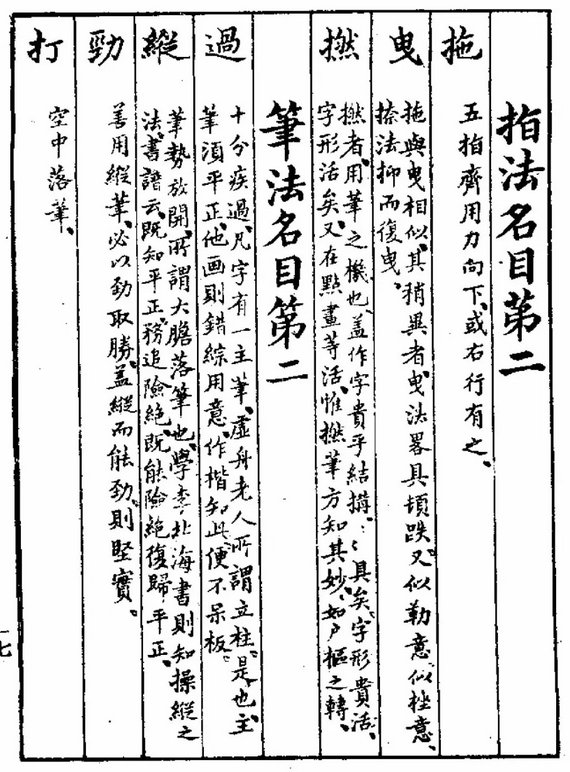 指法名目第二
拖
五指齊用力向下、或右行有之、
曳
拖與曳相似、其稍異者、曳法畧具頓跌、又似勒意、似挫意、
捺法抑而復曳、
撚
撚者、用筆之機也、盖作字貴乎結構、〻具矣、字形貴活、
字形活矣、又在點畫等活、惟撚筆方知其妙、如戶樞之轉、
筆法名目第二
過
十分疾過、凡字有一主筆、虛舟老人所謂立柱、是也、主
筆須平正、他画則錯綜用意、作楷知此、便不呆板。
縱
筆勢放開、所謂大膽落筆也、學李北海書則知操縱之
法、書譜云、既知平正、務追險絶、既能險絶、復歸平正、
勁
善用縱筆、必以勁取勝、盖縱而能勁、則堅實、
打
空中落筆、
一七